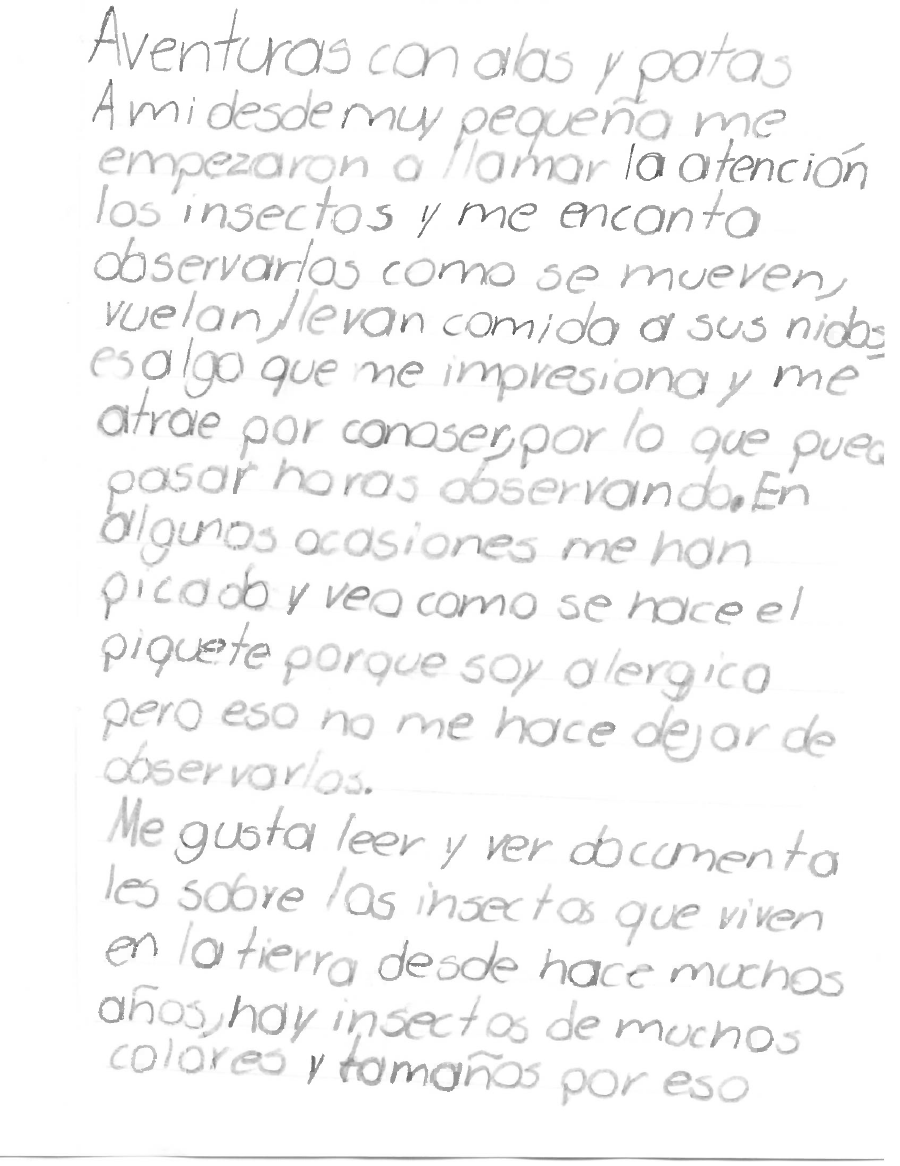 Aventuras con alas y patas
A mi desde muy pequeña me
empezaron a llamar la atención
los insectos y me encanta
observarlos como se mueven,
vuelan, llevan comida a sus nidos
es algo que me impresiona y me
atrae por conoser, por lo que pued
pasar horas observando. En
algunos ocasiones me han
picado y veo como se hace el
piquete porque soy alergica
pero eso no me hace dejar de
observarlos.
Me gusta leer y ver documenta
les sobre los insectos que viven
en la tierra desde hace muchos
años, hay insectos de muchos
colores y tamaños por eso